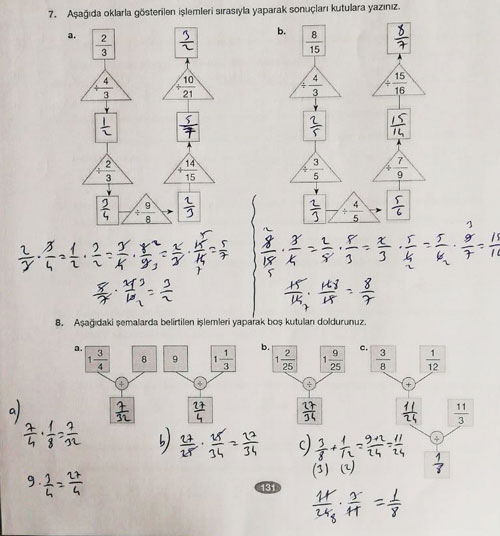 7. Aşağıda oklarla gösterilen işlemleri sırasıyla yaparak sonuçları kutulara yazınız.
a. b.
2/3 3/2 8/15 8/7
÷ 4/3 ÷ 10/21 ÷ 4/3 ÷ 15/16
1/2 5/7 2/5 15/14
÷ 2/3 ÷ 14/15 ÷ 3/5 ÷ 7/9
3/4 ÷ 9/8 2/3 2/3 ÷ 4/5 5/6
2/3 · 3/4 = 1/2 · 3/2 = 3/4 · 8/9 = 2/3 · 15/14 = 5/7
8/15 · 3/4 = 2/5 · 5/3 = 2/3 · 5/4 = 5/6 · 9/7 = 15/14
5/7 · 21/10 = 3/2
15/14 · 16/15 = 8/7
8. Aşağıdaki şemalarda belirtilen işlemleri yaparak boş kutuları doldurunuz.
a. b. c.
1 3/4 8 9 1 1/3 1 2/25 1 9/25 3/8 1/12
÷ ÷ ÷ +
7/32 27/4 27/34 11/24 11/3
÷
1/8
a) 7/4 · 1/8 = 7/32
9 · 3/4 = 27/4
b) 27/25 · 25/34 = 27/34
c) 3/8 + 1/12 = 9+2/24 = 11/24
(3) (2)
11/24 · 3/11 = 1/8
131